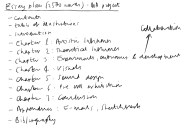 Essay plan (1500 words) A2 project
- Contents
- Table of illustrations
- Introduction
- Chapter 1: Artistic influences
- Chapter 2: Theoretical influences
- Chapter 3: Experiments, outcomes & development
- Chapter 4: Visuals
- Chapter 5: Sound design
- Chapter 6: exhibition
- Chapter 7: Conclusion
- Appendices: E-mails, sketchbook
- Bibliography
Collaboration